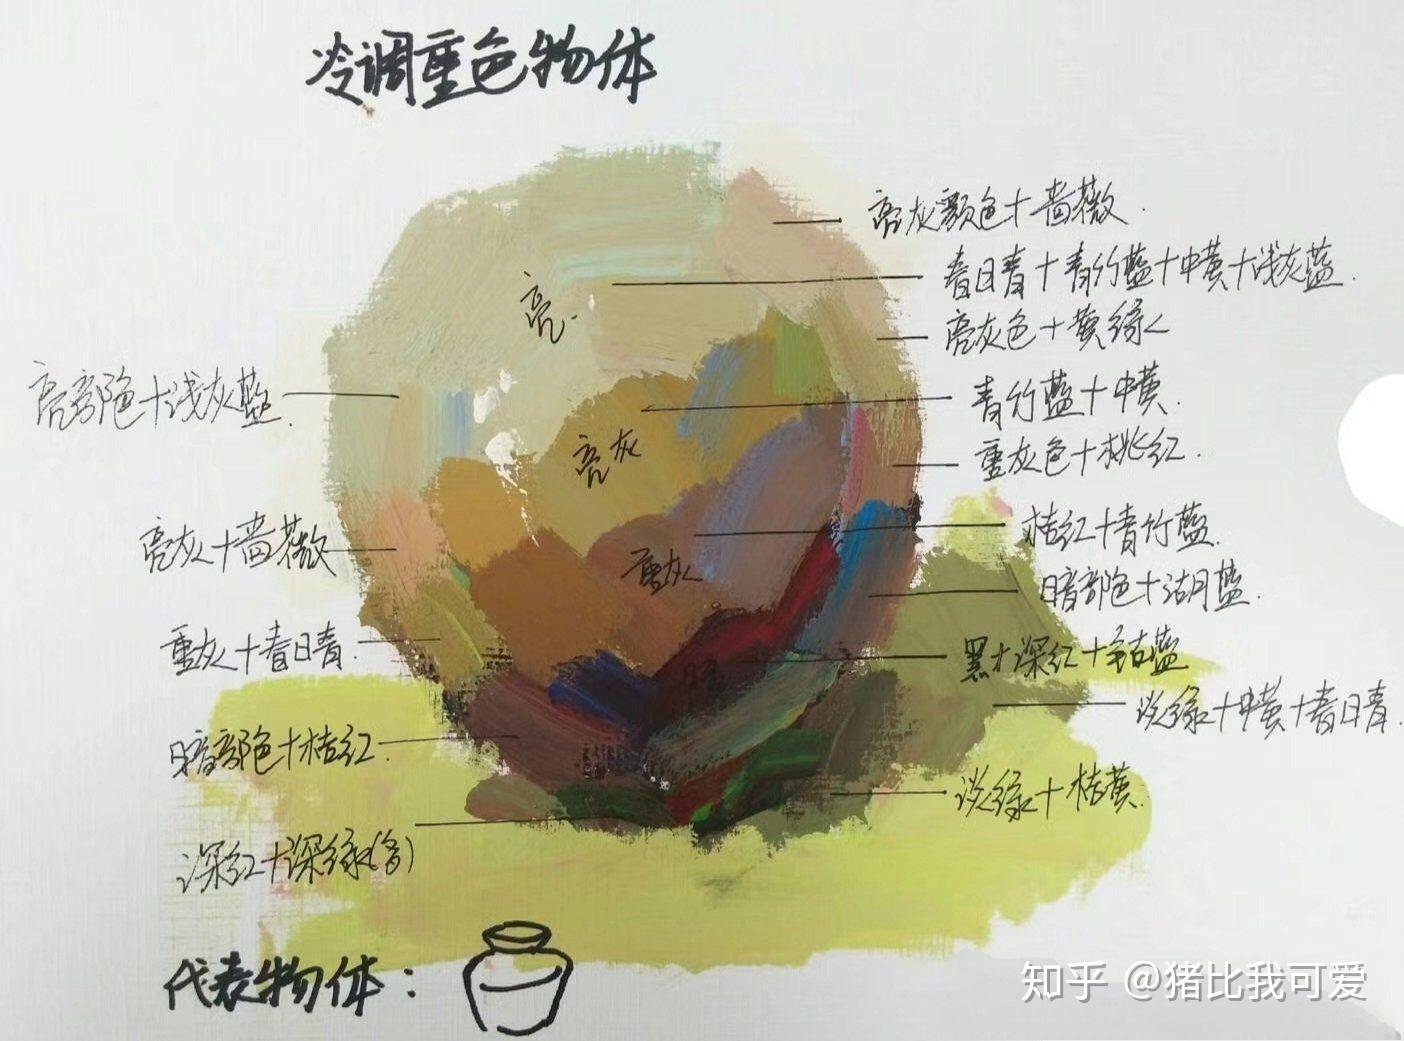 冷调重色物体
亮灰颜色+蔷薇.
春日青+青竹蓝+中黄+浅灰蓝.
亮.
亮灰色+黄绿
亮部色+浅灰蓝.
青竹蓝+中黄.
亮灰
重灰色+桃红.
桔红+青竹蓝.
亮灰+蔷薇
重灰
暗部色+湖蓝.
重灰+春日青.
黑+深红+钴蓝
淡绿+中黄+春日青.
暗
暗部色+桔红.
淡绿+桔黄.
深红+深绿(多)
代表物体:
知乎 @猪比我可爱